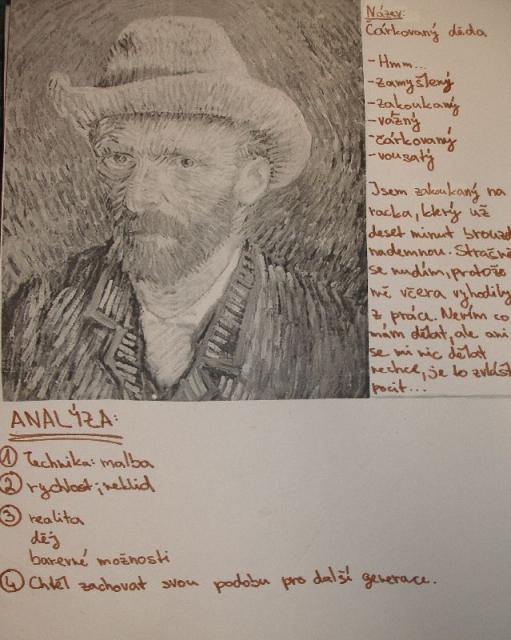 Název:
Čárkovaný děda
- Hmm...
- zamyšlený
- zakoukaný
- vážný
- čárkovaný
- vousatý
Jsem zakoukaný na
racka, který už
deset minut brouzd
nademnou. Strašně
se nudím, protože
mě včera vyhodily
z práce. Nevím co
mám dělat, ale ani
se mi nic dělat
nechce, je to zvlášt
pocit...
ANALÝZA:
① Technika: malba
② rychlost; neklid
③ realita
děj
barevné možnosti
④ Chtěl zachovat svou podobu pro další generace.